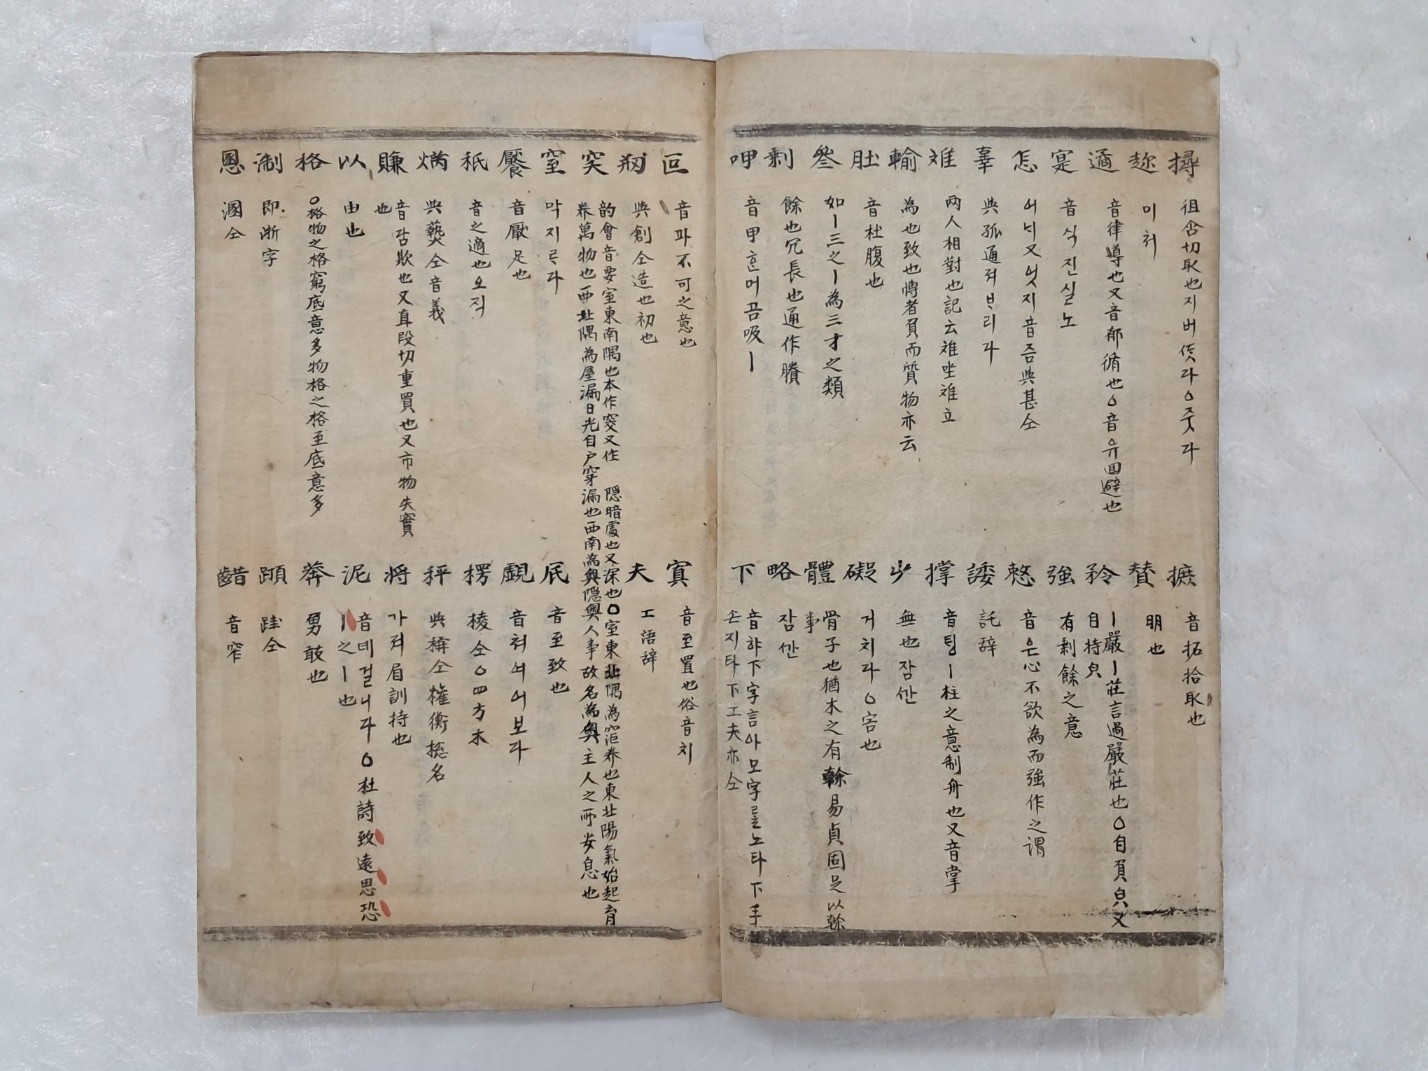 撏 徂含切取也지버 라○
趂 미처
遹 音律導也又音 循也○音유回避也
寔 音식진실노
怎 어 又 지音즘與甚仝
辜 與孤通져ᄇᆞ리다
𨿽 兩人相對也記云𨿽坐𨿽立
輸 為也致也愽者負而質物亦云
肚 音杜腹也
叅 如丨三之丨為三才之類
剩 餘也冗長也通作賸
呷 音甲ᄒᆞᆫ머곰吸丨
摭 音拓拾取也
賛 明也
矜 丨嚴丨莊言過嚴莊也○自負皃又
自持皃
強 有剩餘之意
憖 音은心不欲為而強作之谓
諉 託辞
撑 音팅丨柱之意制舟也又音掌
少 無也잠
礙 거치다○害也
體 骨子也猶木之有榦易貞固足以榦
事
略 잠
下 音하下字言아모字 노타下手
손지타下工夫亦仝
叵 音파不可之意也
刱 與創仝造也初也
突 韵會音要室東南隅也本作窔又作 隠暗處也又深也○室東北隅為宧养也東北陽氣始起育
养萬物也西北隅為屋漏日光自户穿漏也西南為奥隠奥人事故名為奥主人之所安息也
窒 막지ᄅᆞ다
饜 音厭足也
秖 音之適也오직
焫 與爇仝音義
賺 音잠欺也又直段切重買也又市物失實
也
以 由也
格 ○格物之格窮底意多物格之格至底意多
淛 即浙字
慁 溷仝
寘 音至置也俗音치
夫 工语辞
厎 音至致也
覰 音쳐셔어보다
楞 稜仝○四方木
秤 與稱仝權衡摠名
將 가져眉訓持也
泥 音데걸니다○杜詩致遠思恐
丨之丨也
莽 勇敢也
䠕 跬仝
齰 音窄